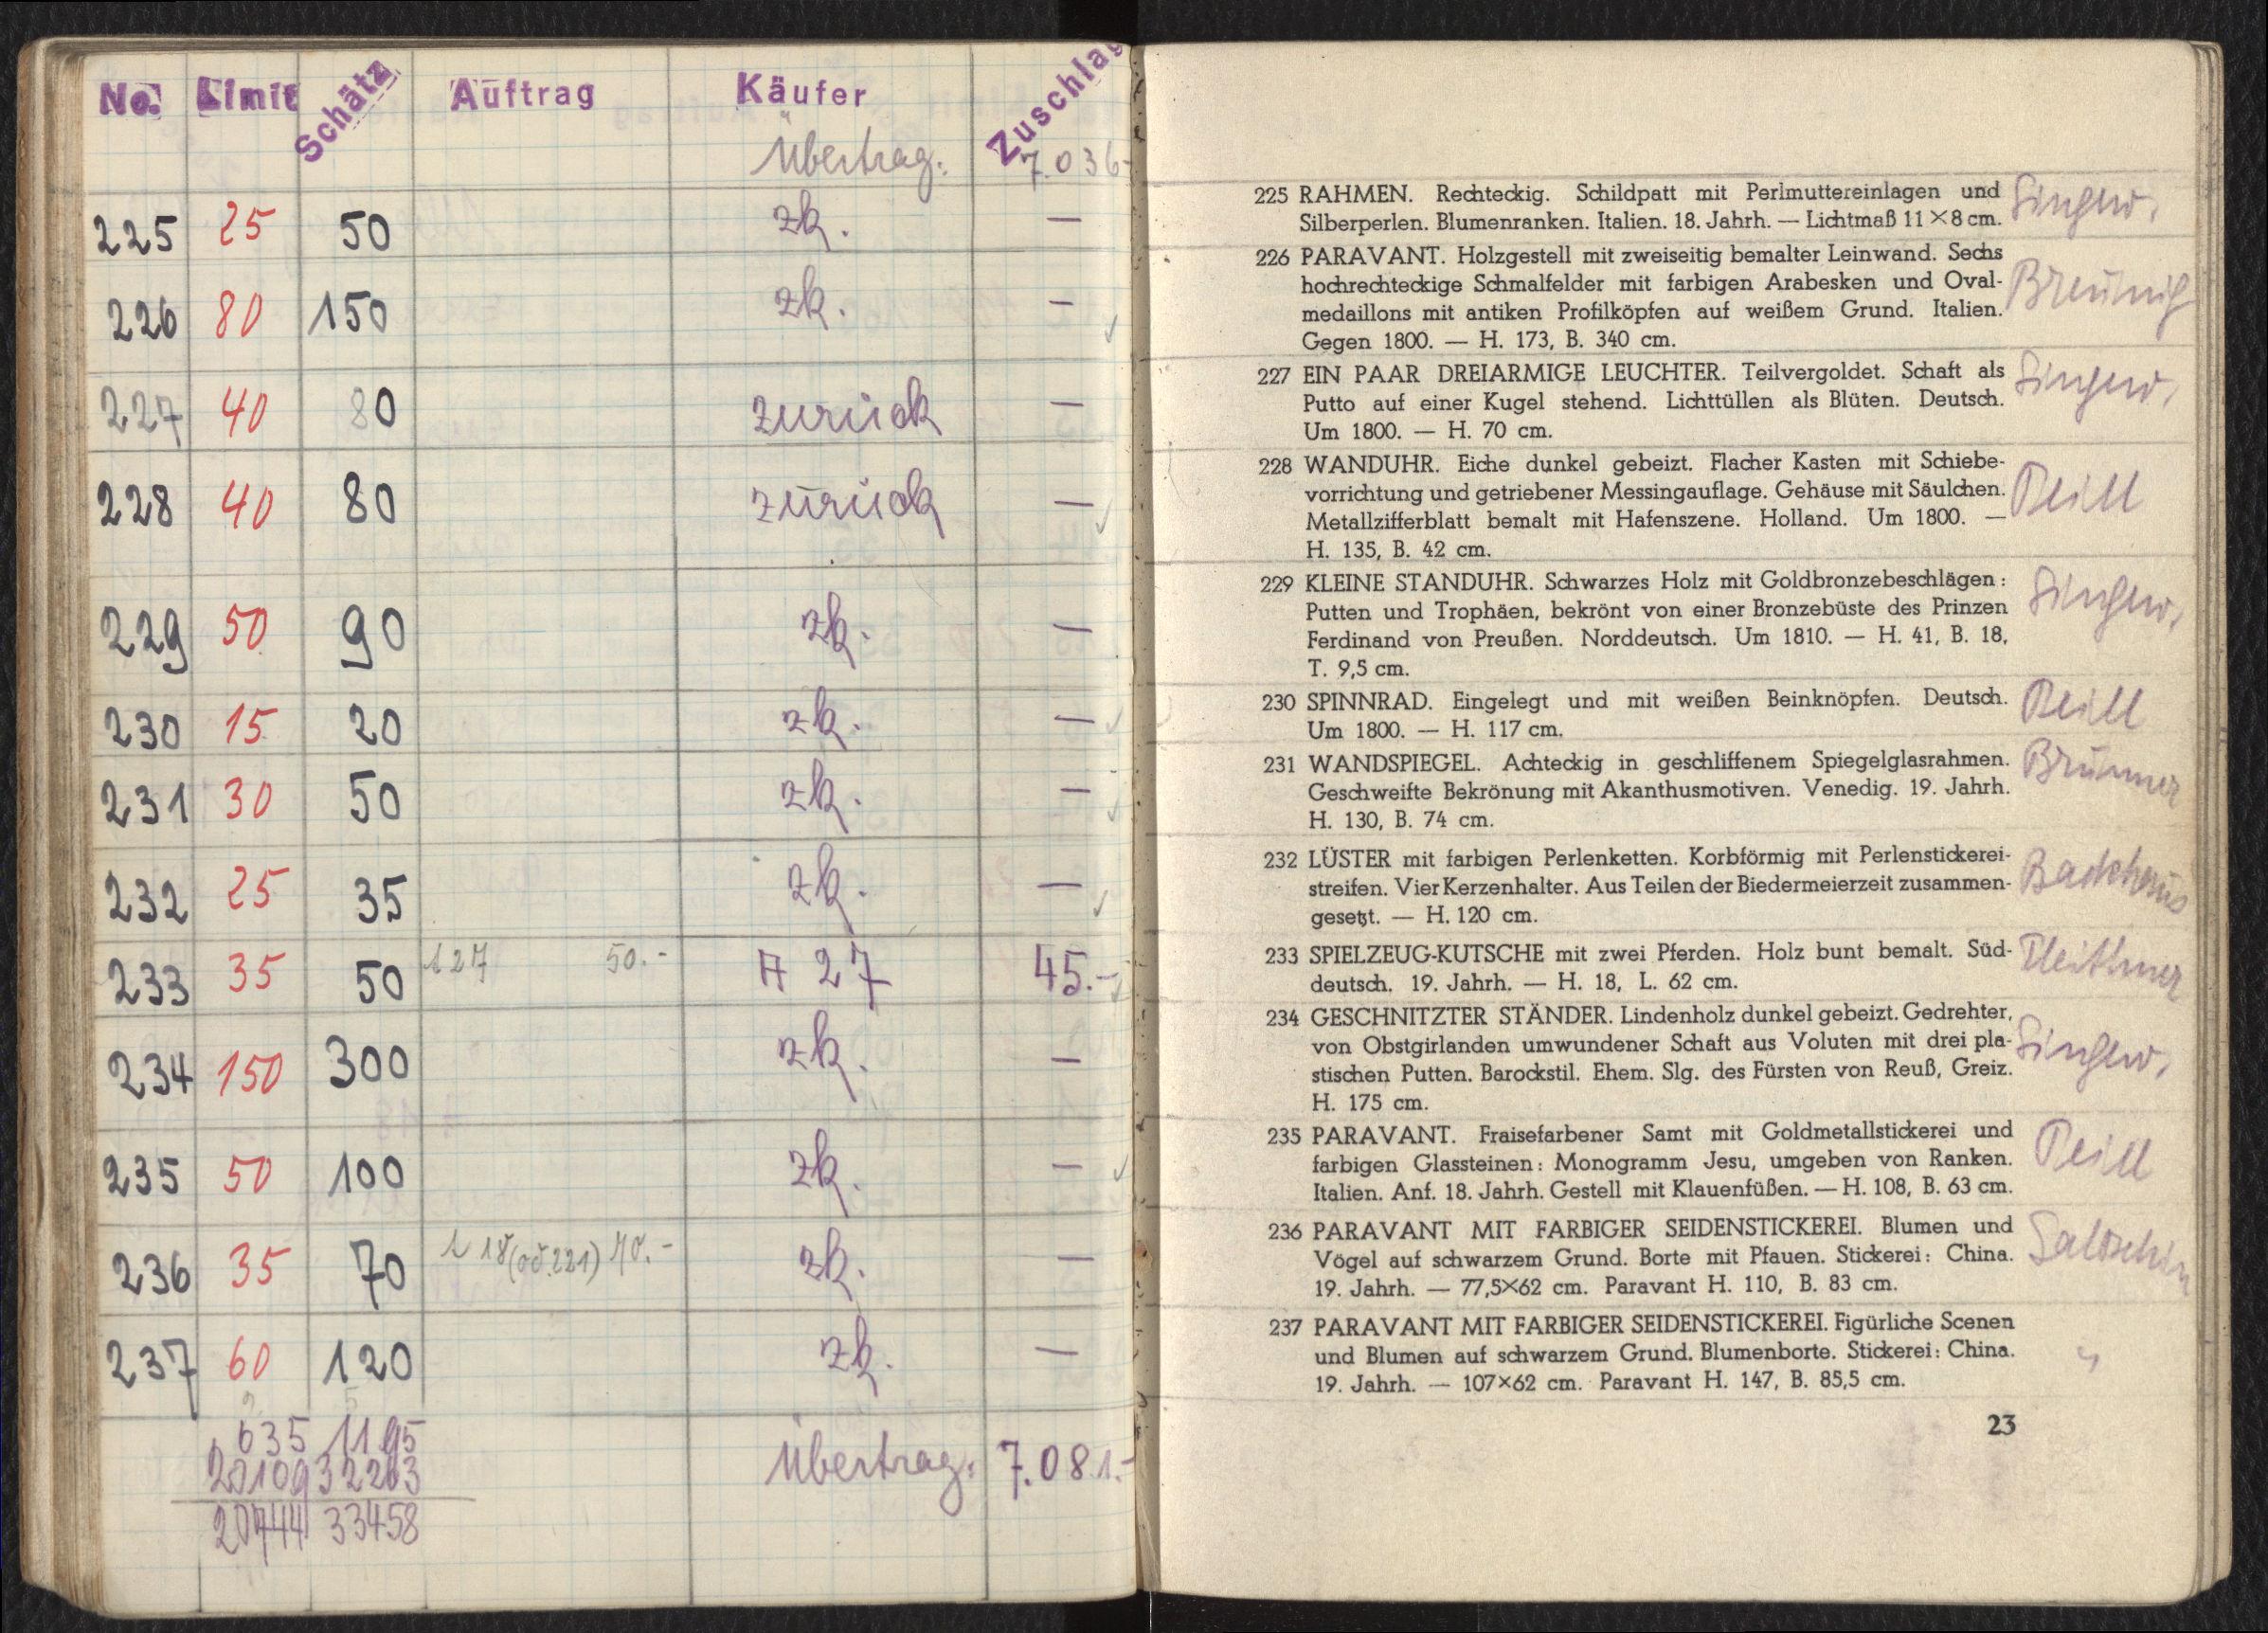 No. Limit Schätz Auftrag Käufer Zuschlag
Übertrag: 7.036.-
225 25 50 zk. —
226 80 150 zk. —
227 40 80 zurück —
228 40 80 zurück —
229 50 90 zk. —
230 15 20 zk. —
231 30 50 zk. —
232 25 35 zk. —
233 35 50 127 50.- A 27 45.-
234 150 300 zk. —
235 50 100 zk. —
236 35 70 zk. —
237 60 120 zk. —
635 1195
20109 32263
20744 33458
Übertrag: 7.081.-
225 RAHMEN. Rechteckig. Schildpatt mit Perlmuttereinlagen und
Silberperlen. Blumenranken. Italien. 18. Jahrh. — Lichtmaß 11×8 cm.
226 PARAVANT. Holzgestell mit zweiseitig bemalter Leinwand. Sechs
hochrechteckige Schmalfelder mit farbigen Arabesken und Oval-
medaillons mit antiken Profilköpfen auf weißem Grund. Italien.
Gegen 1800. — H. 173, B. 340 cm.
Breunig
227 EIN PAAR DREIARMIGE LEUCHTER. Teilvergoldet. Schaft als
Putto auf einer Kugel stehend. Lichttüllen als Blüten. Deutsch.
Um 1800. — H. 70 cm.
228 WANDUHR. Eiche dunkel gebeizt. Flacher Kasten mit Schiebe-
vorrichtung und getriebener Messingauflage. Gehäuse mit Säulchen.
Metallzifferblatt bemalt mit Hafenszene. Holland. Um 1800. —
H. 135, B. 42 cm.
229 KLEINE STANDUHR. Schwarzes Holz mit Goldbronzebeschlägen:
Putten und Trophäen, bekrönt von einer Bronzebüste des Prinzen
Ferdinand von Preußen. Norddeutsch. Um 1810. — H. 41, B. 18,
T. 9,5 cm.
230 SPINNRAD. Eingelegt und mit weißen Beinknöpfen. Deutsch.
Um 1800. — H. 117 cm.
231 WANDSPIEGEL. Achteckig in geschliffenem Spiegelglasrahmen.
Geschweifte Bekrönung mit Akanthusmotiven. Venedig. 19. Jahrh.
H. 130, B. 74 cm.
Brunner
232 LÜSTER mit farbigen Perlenketten. Korbförmig mit Perlenstickerei-
streifen. Vier Kerzenhalter. Aus Teilen der Biedermeierzeit zusammen-
gesetzt. — H. 120 cm.
Backhaus
233 SPIELZEUG-KUTSCHE mit zwei Pferden. Holz bunt bemalt. Süd-
deutsch. 19. Jahrh. — H. 18, L. 62 cm.
234 GESCHNITZTER STÄNDER. Lindenholz dunkel gebeizt. Gedrehter,
von Obstgirlanden umwundener Schaft aus Voluten mit drei pla-
stischen Putten. Barockstil. Ehem. Slg. des Fürsten von Reuß, Greiz.
H. 175 cm.
235 PARAVANT. Fraisefarbener Samt mit Goldmetallstickerei und
farbigen Glassteinen: Monogramm Jesu, umgeben von Ranken.
Italien. Anf. 18. Jahrh. Gestell mit Klauenfüßen. — H. 108, B. 63 cm.
236 PARAVANT MIT FARBIGER SEIDENSTICKEREI. Blumen und
Vögel auf schwarzem Grund. Borte mit Pfauen. Stickerei: China.
19. Jahrh. — 77,5×62 cm. Paravant H. 110, B. 83 cm.
237 PARAVANT MIT FARBIGER SEIDENSTICKEREI. Figürliche Scenen
und Blumen auf schwarzem Grund. Blumenborte. Stickerei: China.
19. Jahrh. — 107×62 cm. Paravant H. 147, B. 85,5 cm.
23